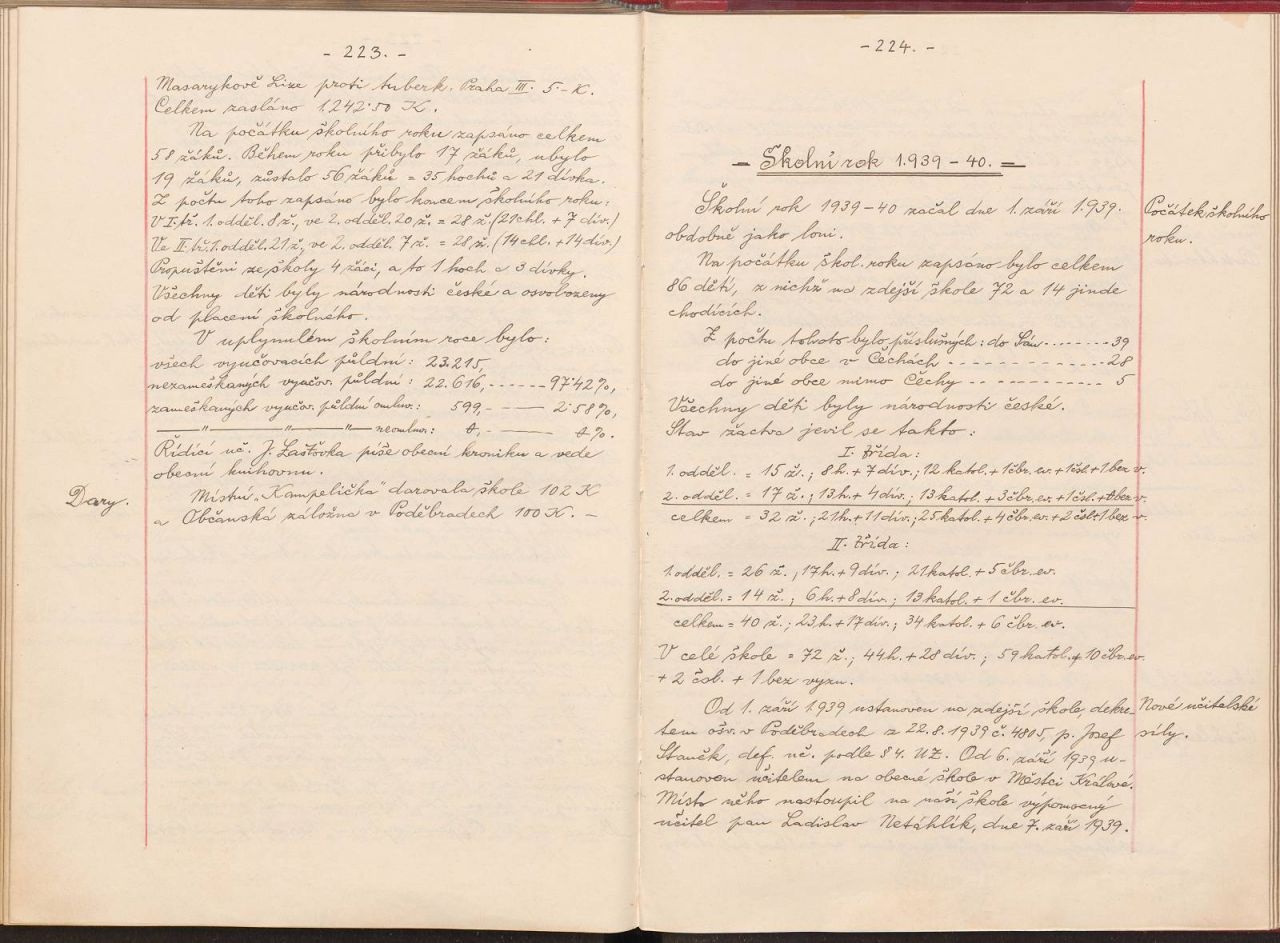 - 223. -
Masarykově Lize proti tuberk. Praha III. 5·- K.
Celkem zasláno 1.242·50 K.
Na počátku školního roku zapsáno celkem
58 žáků. Během roku přibylo 17 žáků, ubylo
19 žáků, zůstalo 56 žáků = 35 hochů a 21 dívka.
Z počtu toho zapsáno bylo koncem školního roku:
V I. tř. 1. odděl. 8 ž., ve 2. odděl. 20 ž. = 28 ž. (21 chl. + 7 dív.)
Ve II. tř. 1. odděl. 21 ž., ve 2. odděl. 7 ž. = 28 ž. (14 chl. + 14 dív.)
Propuštěni ze školy 4 žáci, a to 1 hoch a 3 dívky.
Všechny děti byly národnosti české a osvobozeny
od placení školného.
V uplynulém školním roce bylo:
všech vyučovacích půldní: 23.215,
nezameškaných vyučov. půldní: 22.616, - - - - - - 97·42 %,
zameškaných vyučov. půldní omluv.: 599, - —— 2·58 %,
—— " —— " —— " — neomluv.: 0, - —— 0 %.
Řídící uč. J. Laštovka píše obecní kroniku a vede
obecní knihovnu.
Dary.
Místní „Kampelička" darovala škole 102 K
a Občanská záložna v Poděbradech 100 K. -
- 224. -
- Školní rok 1.939 - 40. -
Školní rok 1939-40 začal dne 1. září 1.939.
Počátek školního
obdobně jako loni.
roku.
Na počátku škol. roku zapsáno bylo celkem
86 dětí, z nichž na zdejší škole 72 a 14 jinde
chodících.
Z počtu tohoto bylo příslušných: do Sán - - - - - - - - 39
do jiné obce v Čechách - - - - - - - - - - - - - 28
do jiné obce mimo Čechy - - - - - - - - - - - 5
Všechny děti byly národnosti české.
Stav žactva jevil se takto:
I. třída:
1. odděl. = 15 ž.; 8 h. + 7 dív.; 12 katol. + 1 čbr. ev. + 1 čsl. + 1 bez v.
2. odděl. = 17 ž.; 13 h. + 4 dív.; 13 katol. + 3 čbr. ev. + 1 čsl. + 0 bez v.
celkem = 32 ž.; 21 h. + 11 dív.; 25 katol. + 4 čbr. ev. + 2 čsl. + 1 bez v.
II. třída:
1. odděl. = 26 ž.; 17 h. + 9 dív.; 21 katol. + 5 čbr. ev.
2. odděl. = 14 ž.; 6 h. + 8 dív.; 13 katol. + 1 čbr. ev.
celkem = 40 ž.; 23 h. + 17 dív.; 34 katol. + 6 čbr. ev.
V celé škole = 72 ž.; 44 h. + 28 dív.; 59 katol. + 10 čbr. ev.
+ 2 čsl. + 1 bez vyzn.
Od 1. září 1939 ustanoven na zdejší škole, dekre-
Nové učitelské
tem ošv. v Poděbradech z 22.8.1939 č. 4805, p. Josef
síly.
Staněk, def. uč. podle § 4. UZ. Od 6. září 1939 u-
stanoven učitelem na obecné škole v Městci Králové.
Místo něho nastoupil na naší škole výpomocný
učitel pan Ladislav Netáhlík, dne 7. září 1939.